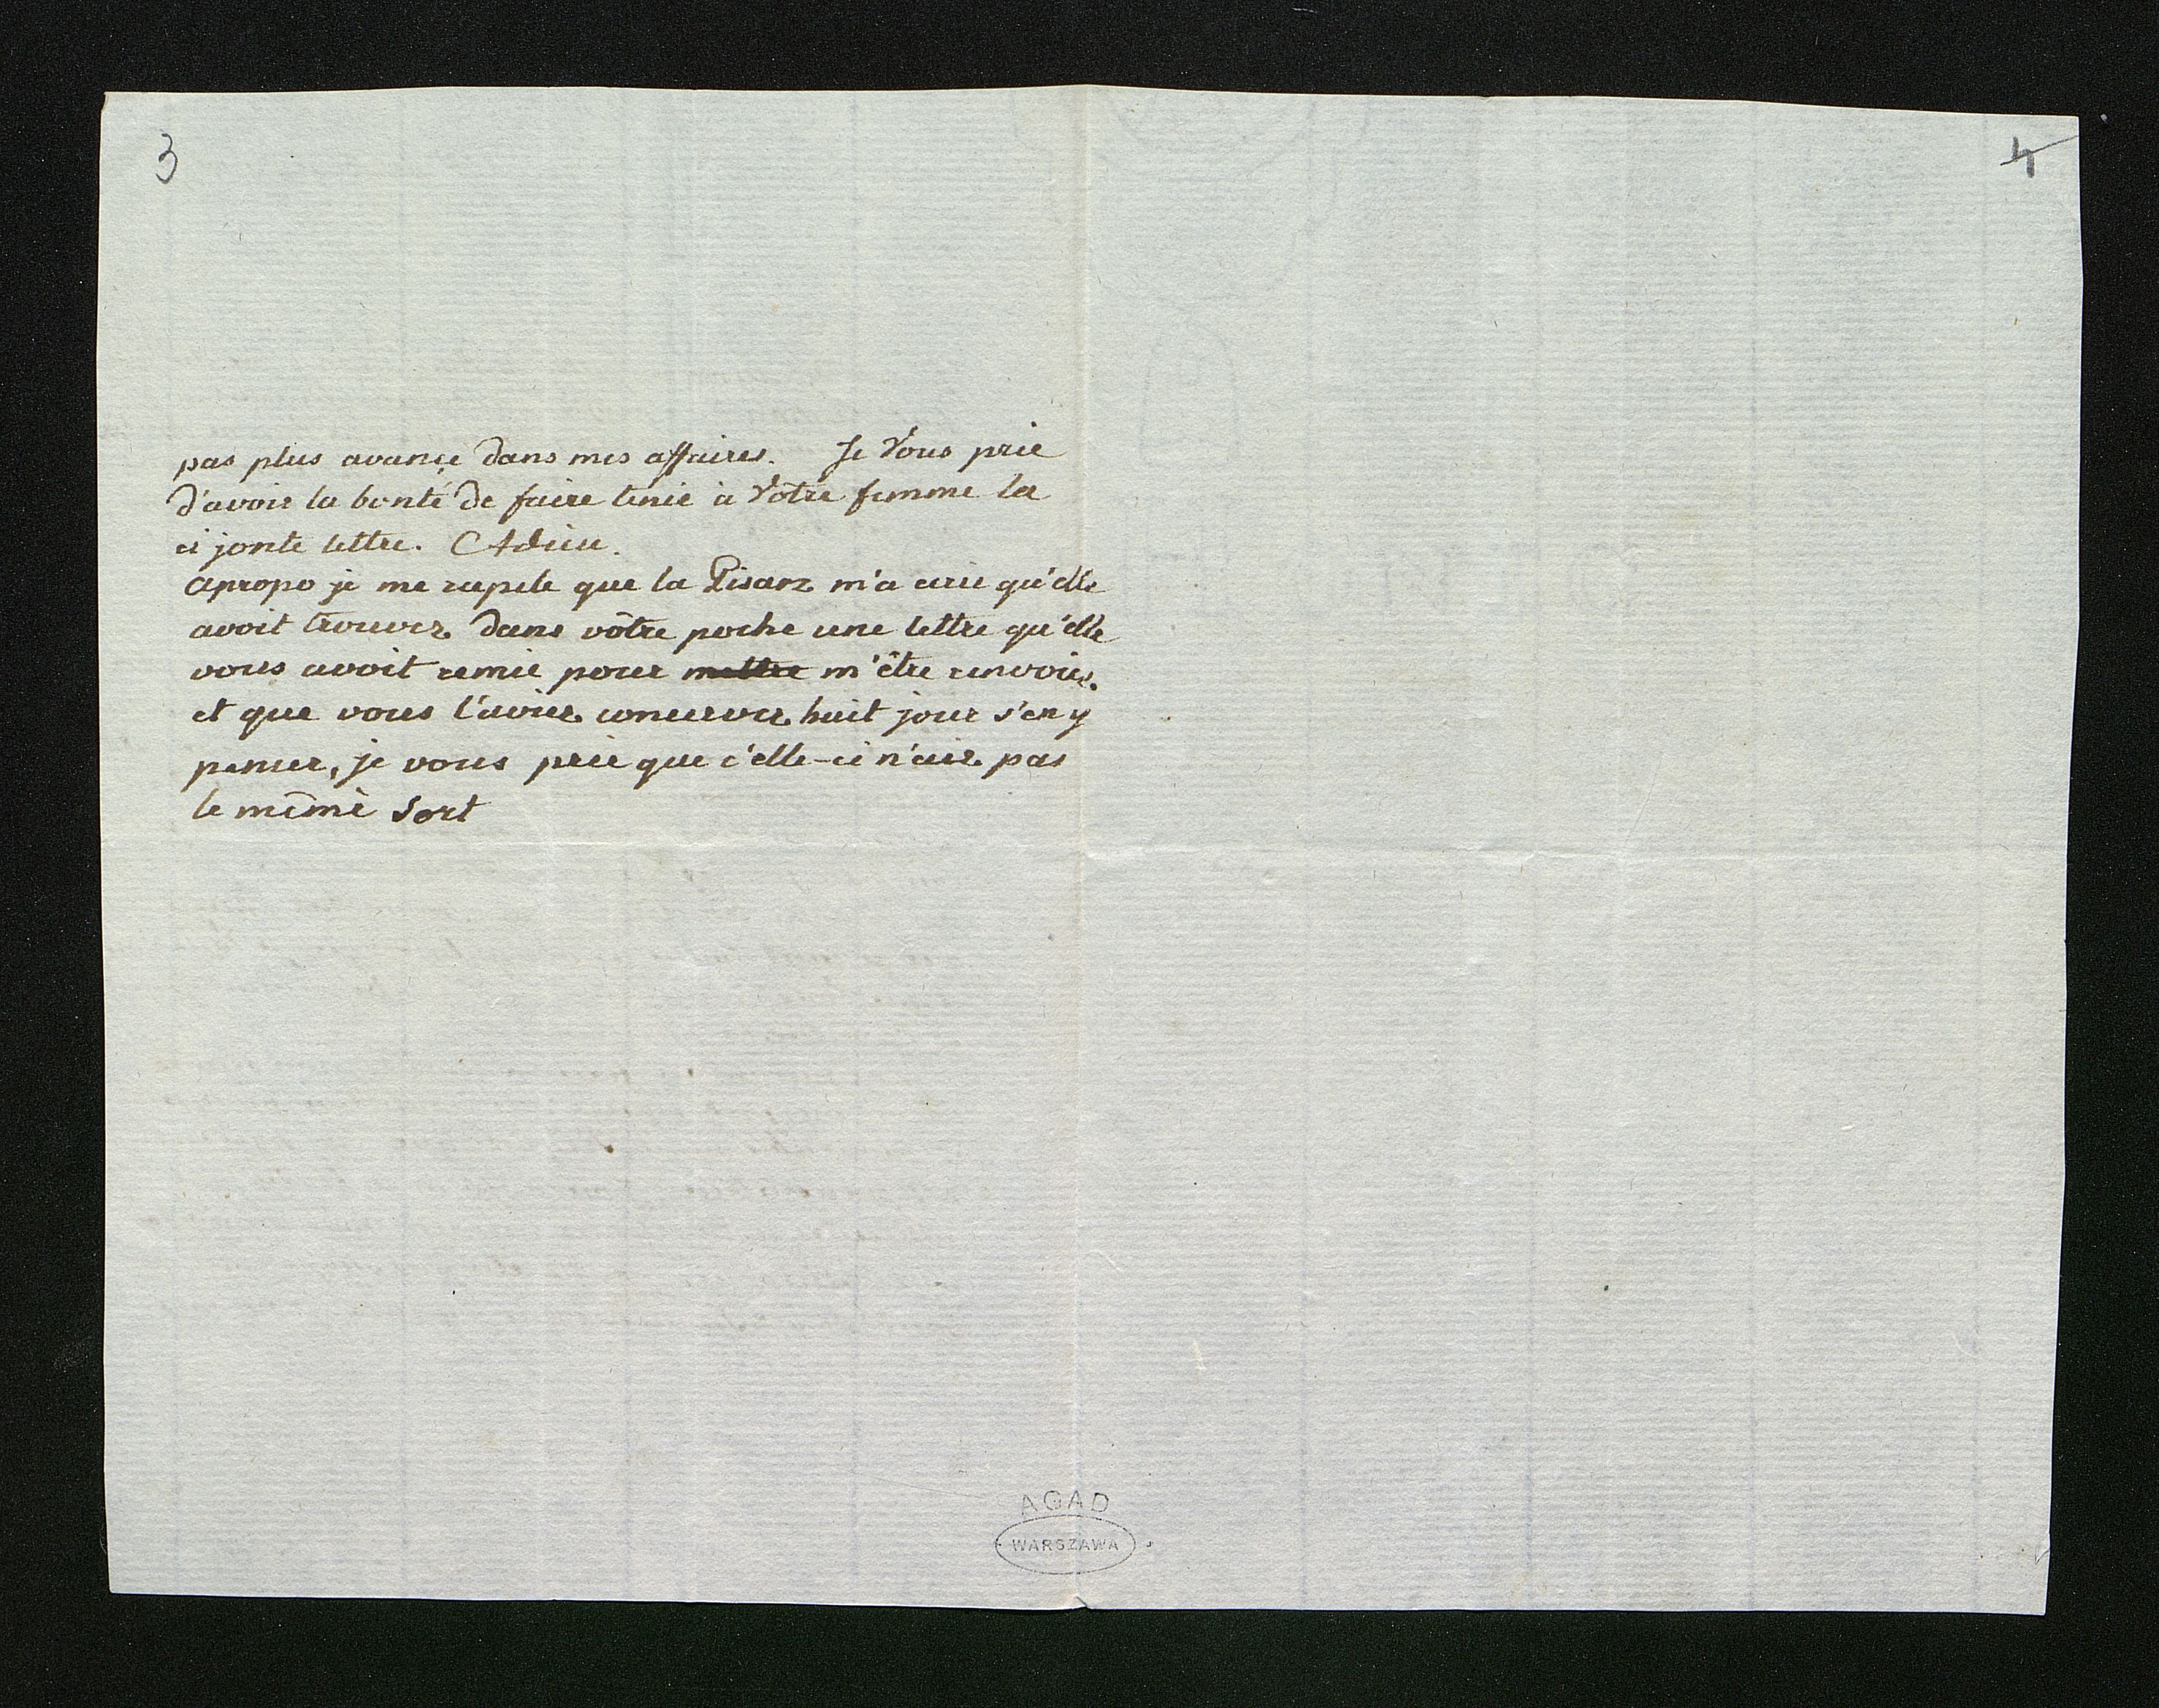 3
4
pas plus avançe dans mes affaires. Je Vous prie
d'avoir la bonté de faire tenir à Vôtre femme la
ci jonte lettre. Adieu.
apropo je me rapele que la Pisarz m'a crie qu'elle
avoit trouvez dans vôtre poche une lettre qu'elle
vous avoit remie pour mettre m'être renvoiez.
et que vous l'aviez conserver huit jour s'en y
penser, je vous prie que c'elle-ci n'aie pas
le même sort
AGAD
WARSZAWA